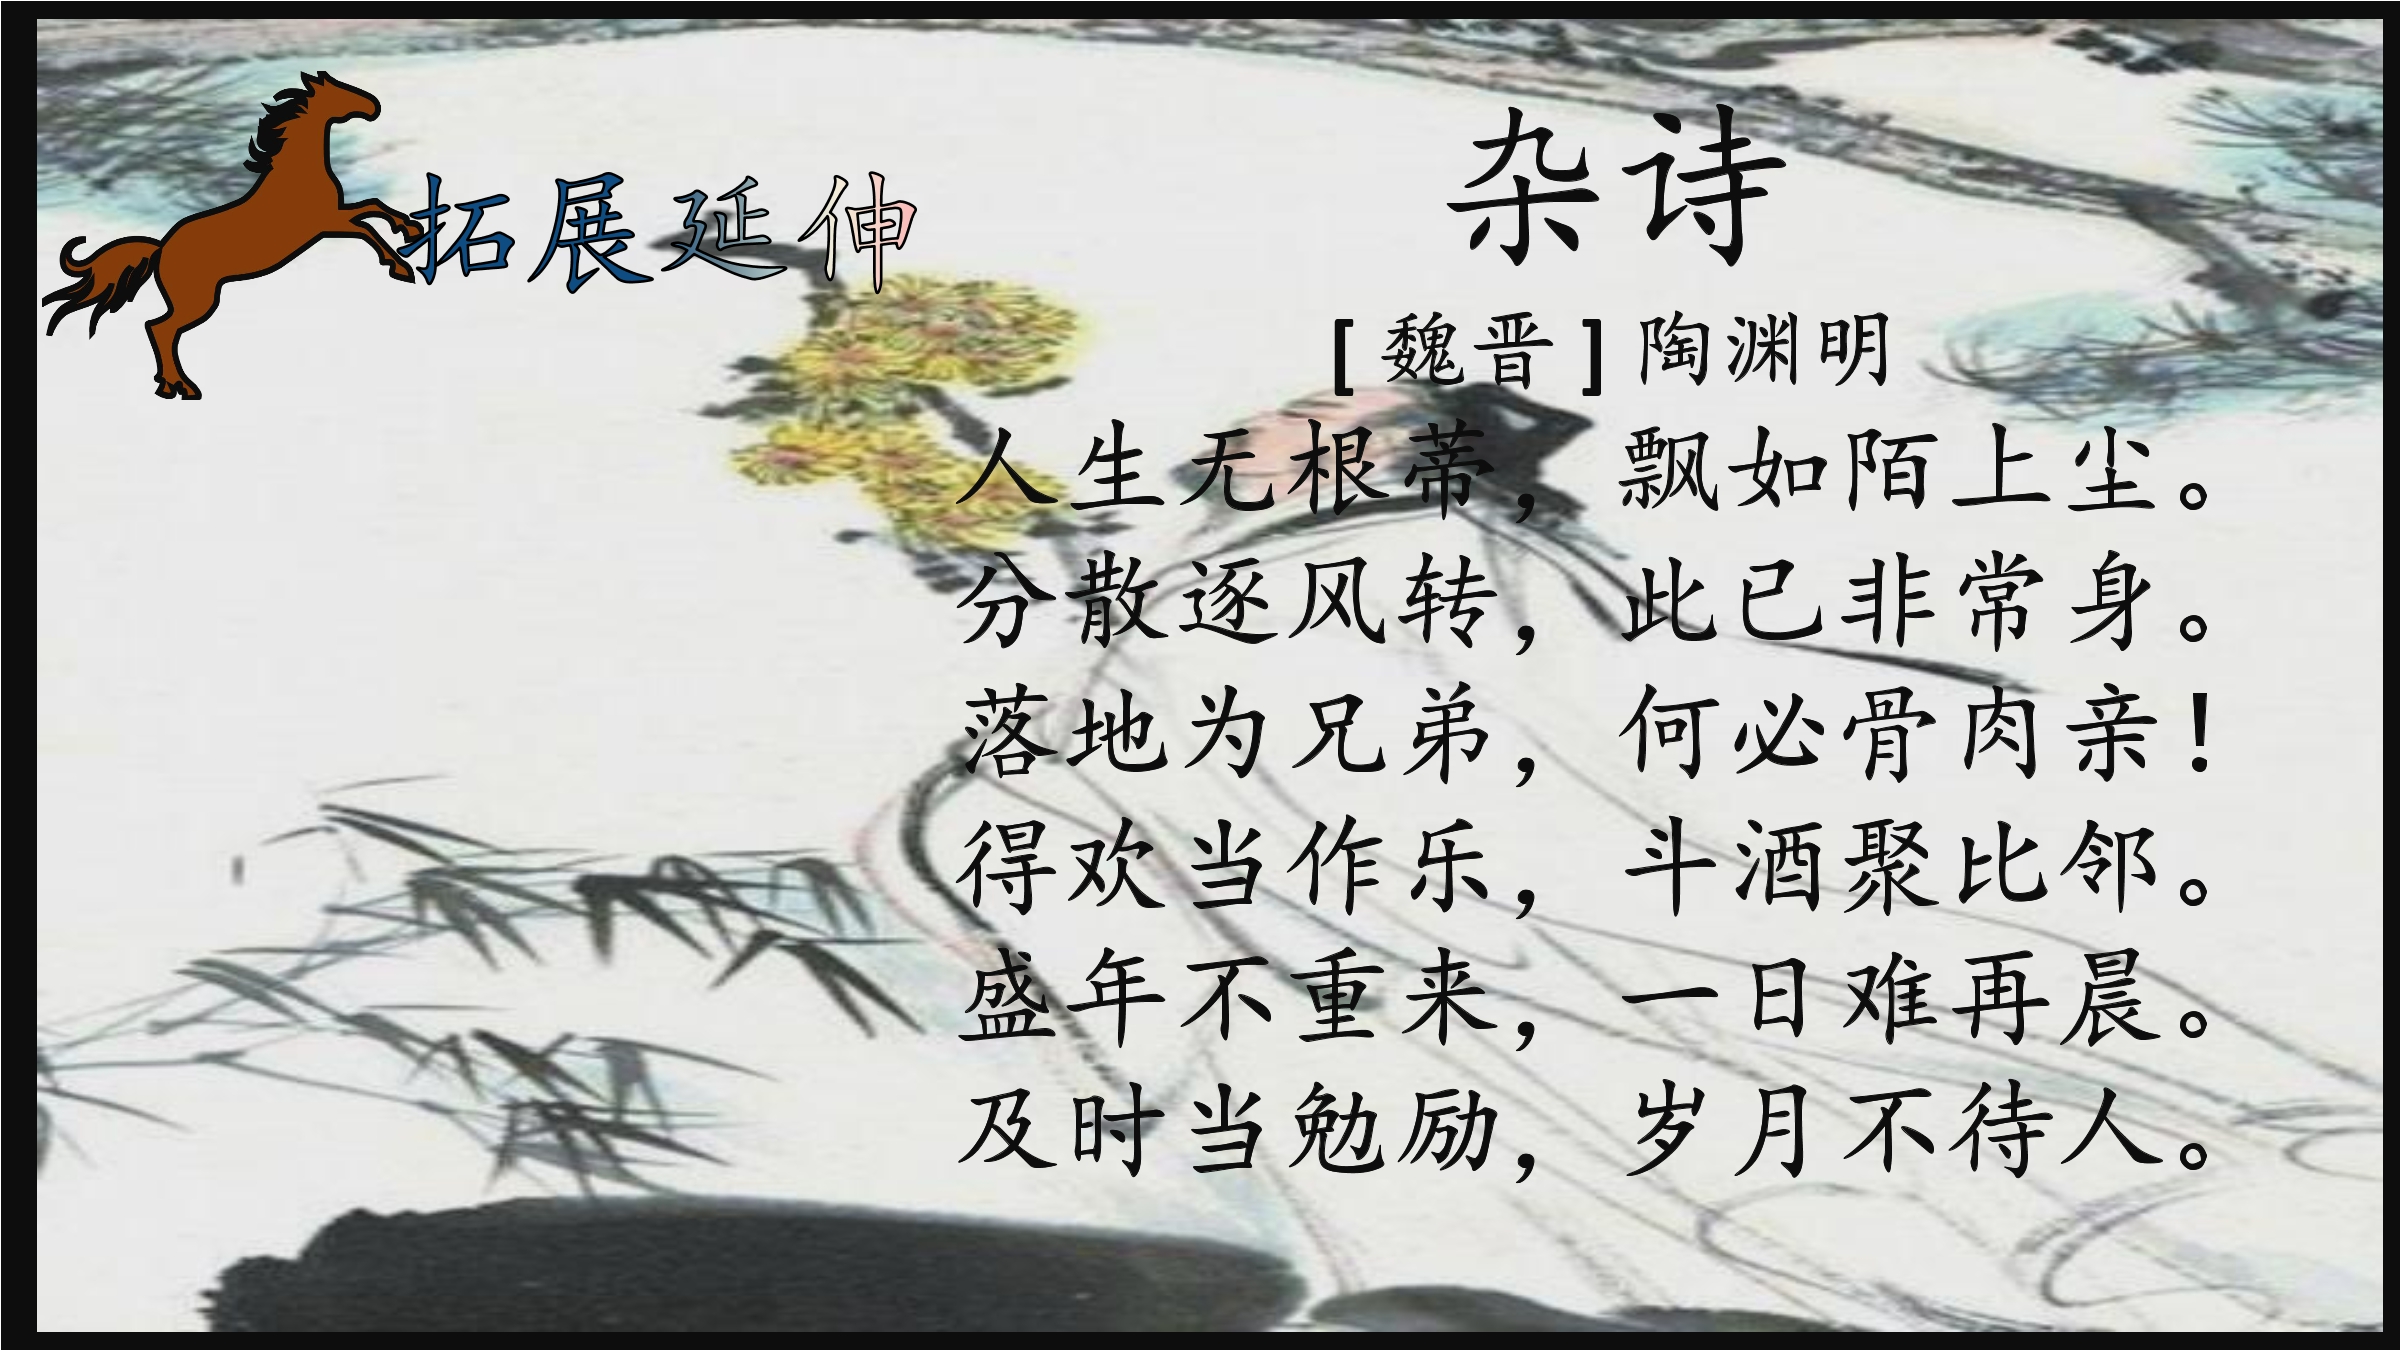 拓展延伸
杂诗
[ 魏晋 ] 陶渊明
人生无根蒂，飘如陌上尘。
分散逐风转，此已非常身。
落地为兄弟，何必骨肉亲！
得欢当作乐，斗酒聚比邻。
盛年不重来，一日难再晨。
及时当勉励，岁月不待人。